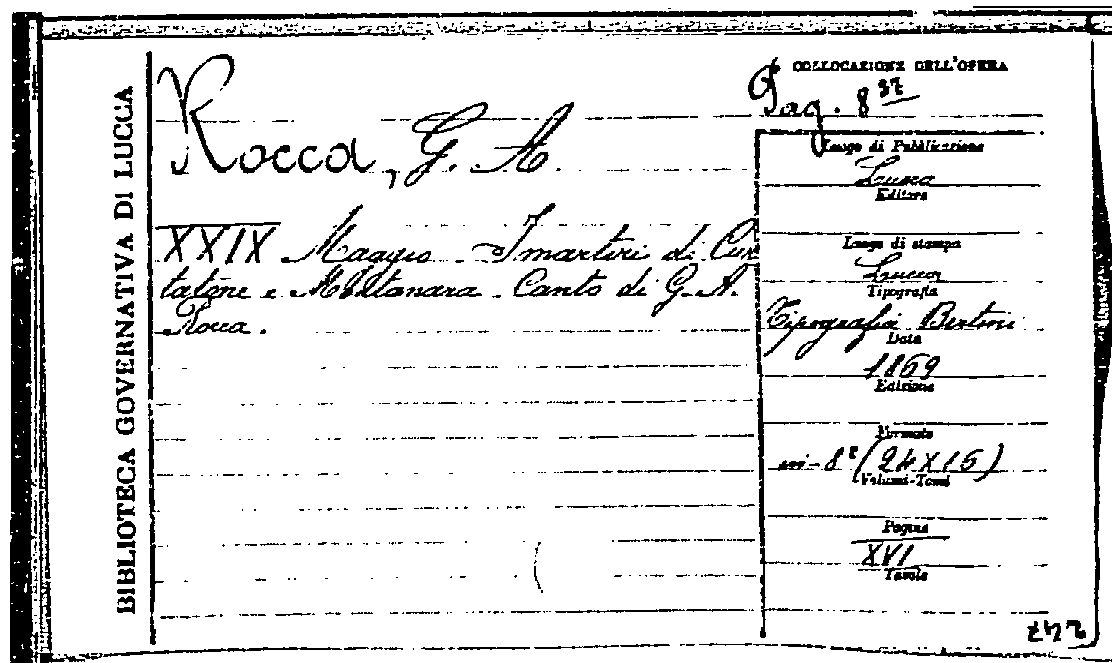 BIBLIOTECA GOVERNATIVA DI LUCCA
Rocca, G. A.
XXIX Maggio - I martiri di Cur
tatone e Montanara - Canto di G. A.
Rocca.
COLLOCAZIONE DELL'OPERA
Pag. 8 37
Luogo di Pubblicazione
Lucca
Editore
Luogo di stampa
Lucca
Tipografia
Tipografia Bertini
Data
1869
Edizione
Formato
in-8° (24X15)
Volumi-Tomi
Pagine
XVI
Tavole